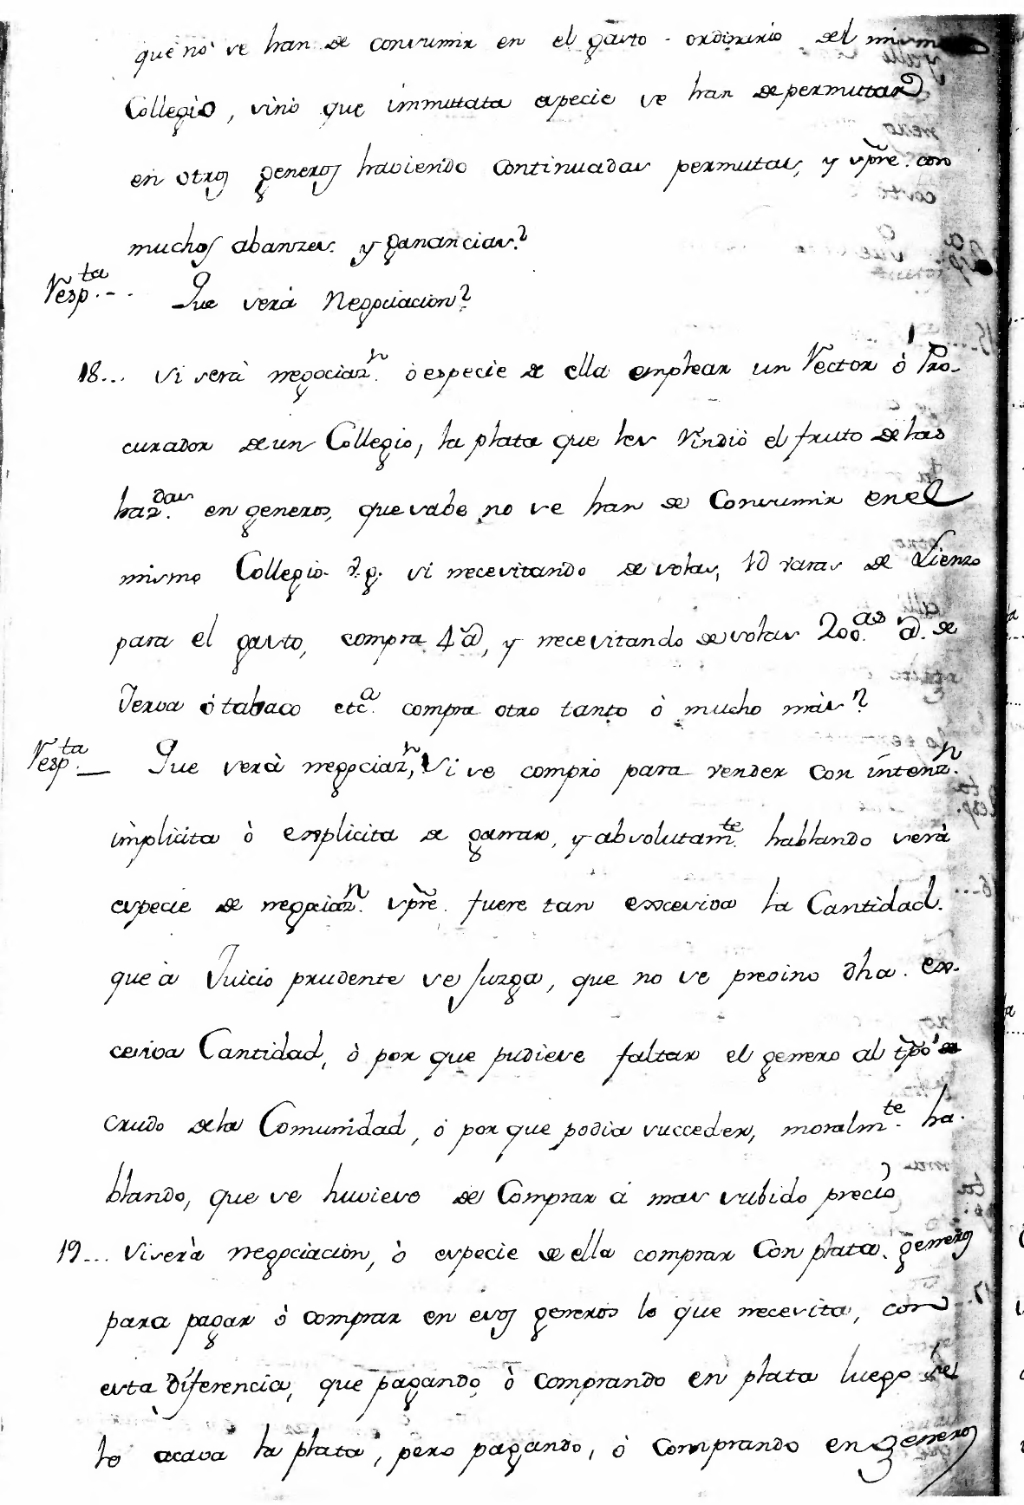 que no se han de consumir en el gasto ordinario del mism
Collegio, sino que immutata especie se han de permutar
en otros generos haviendo continuadas permutas, y spre. con
muchos abanzes y ganancias?
Resp.ta -- Que será Negociacion?
18... Si será negociaz.n ò especie de ella emplear un Rector ò Pro-
curador de un Collegio, la plata que les rindió el fruto de las
haz.das en generos, que sabe no se han de Consumir en el
mismo Collegio v.g. si necesitando de solas, 1U varas de Lienzo
para el gasto, compra 4U, y necesitando de solas 200.as @. de
Yerva ó tabaco etc.a compra otro tanto ò mucho más?
Resp.ta — Que será negociaz.n, si se compró para vender con intenz.n
implicita ò explicita de ganar, y absolutam.te hablando será
especie de negociaz.n spre. fuere tan excesiva la Cantidad.
que à Juicio prudente se Juzga, que no se previno dha. ex-
cesiva Cantidad, ò por que pudiese faltar el genero al tpo de
crudo de la Comunidad, ó por que podia succeder, moralm.te ha-
blando, que se huviese de Comprar á mas subido precio
19... Si será negociacion, ò especie de ella comprar Con plata. generos
para pagar ò comprar en esos generos lo que necesita, con
esta diferencia, que pagando, ò comprando en plata luego se
le acava la plata, pero pagando, ò comprando en generos